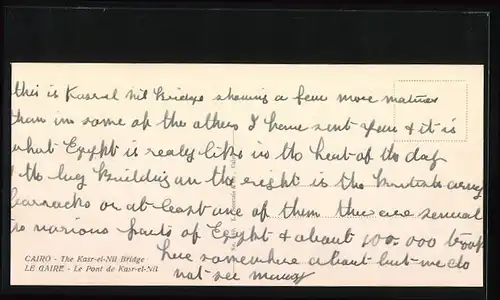 this is Kasr el Nil Bridge showing a few more natives
than in some of the others I have sent you & it is
what Egypt is really like in the heat of the day
the big Building on the right is the British army
barracks or at least one of them there are several
in various parts of Egypt & about 100-000 troops
here somewhere about but we do
not see many
CAIRO - The Kasr-el-Nil Bridge
LE CAIRE - Le Pont de Kasr-el-Nil